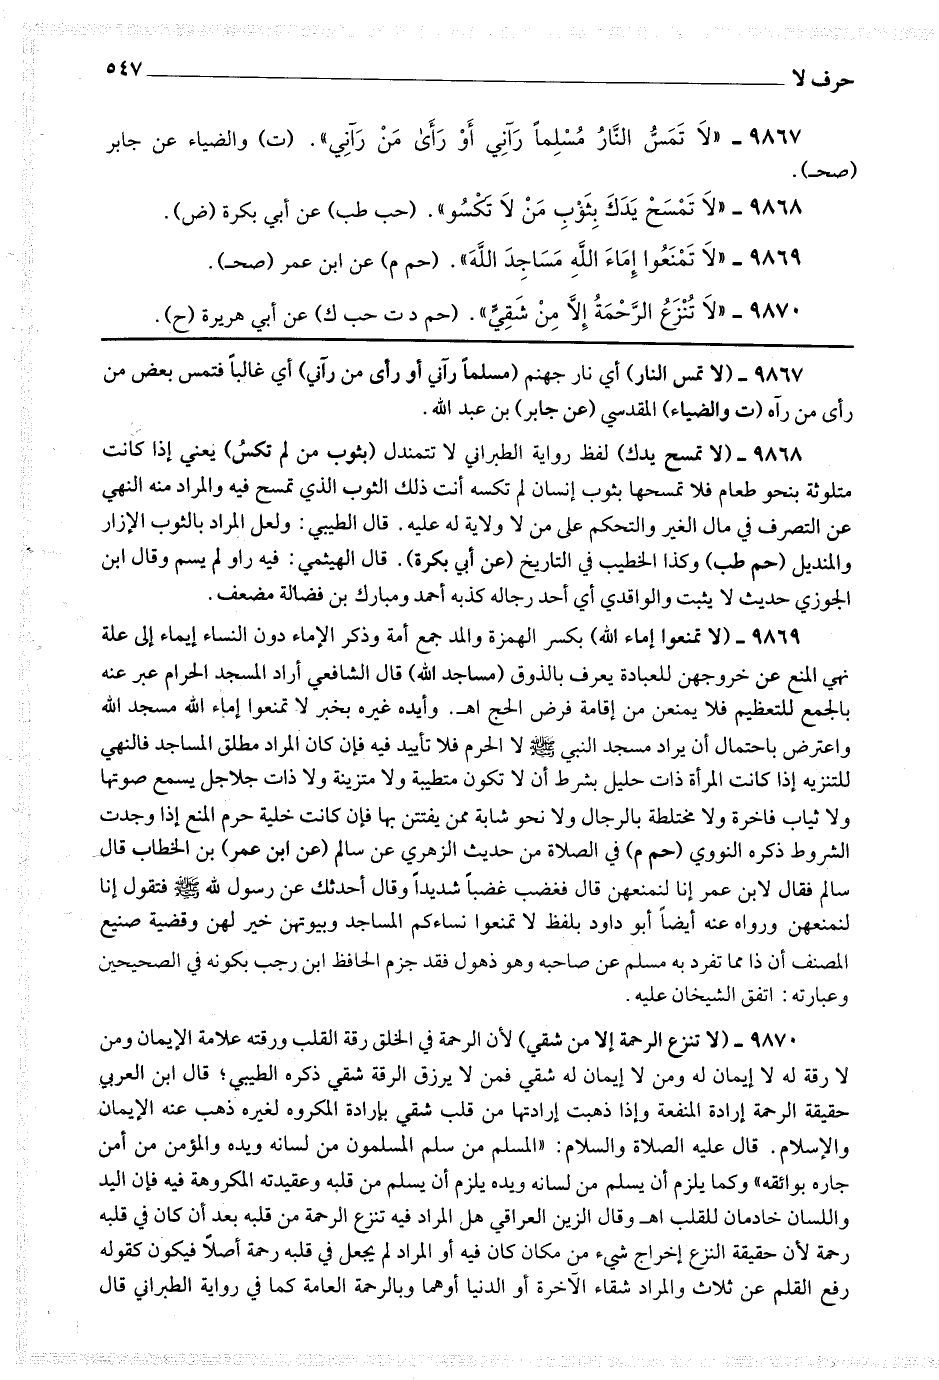 حرف لا ٥٤٧
٩٨٦٧ ـ «لَا تَمَسُّ النَّارُ مُسْلِماً رَآنِي أَوْ رَأَىٰ مَنْ رَآنِي». (ت) والضياء عن جابر
(صحـ).
٩٨٦٨ ـ «لَا تَمْسَحْ يَدَكَ بِثَوْبِ مَنْ لَا تَكْسُو». (حب طب) عن أبي بكرة (ض).
٩٨٦٩ ـ «لَا تَمْنَعُوا إِمَاءَ اللَّهِ مَسَاجِدَ اللَّهَ». (حم م) عن ابن عمر (صحـ).
٩٨٧٠ ـ «لَا تُنْزَعُ الرَّحْمَةُ إِلَّا مِنْ شَقِيٍّ». (حم د ت حب ك) عن أبي هريرة (ح).
٩٨٦٧ ـ (لا تمس النار) أي نار جهنم (مسلماً رآني أو رأى من رآني) أي غالباً فتمس بعض من
رأى من رآه (ت والضياء) المقدسي (عن جابر) بن عبد الله.
٩٨٦٨ ـ (لا تمسح يدك) لفظ رواية الطبراني لا تتمندل (بثوب من لم تكسُ) يعني إذا كانت
متلوثة بنحو طعام فلا تمسحها بثوب إنسان لم تكسه أنت ذلك الثوب الذي تمسح فيه والمراد منه النهي
عن التصرف في مال الغير والتحكم على من لا ولاية له عليه. قال الطيبي: ولعل المراد بالثوب الإزار
والمنديل (حم طب) وكذا الخطيب في التاريخ (عن أبي بكرة). قال الهيثمي: فيه راو لم يسم وقال ابن
الجوزي حديث لا يثبت والواقدي أي أحد رجاله كذبه أحمد ومبارك بن فضالة مضعف.
٩٨٦٩ ـ (لا تمنعوا إماء الله) بكسر الهمزة والمد جمع أمة وذكر الإماء دون النساء إيماء إلى علة
نهي المنع عن خروجهن للعبادة يعرف بالذوق (مساجد الله) قال الشافعي أراد المسجد الحرام عبر عنه
بالجمع للتعظيم فلا يمنعن من إقامة فرض الحج اهـ. وأيده غيره بخبر لا تمنعوا إماء الله مسجد الله
واعترض باحتمال أن يراد مسجد النبي ﷺ لا الحرم فلا تأييد فيه فإن كان المراد مطلق المساجد فالنهي
للتنزيه إذا كانت المرأة ذات حليل بشرط أن لا تكون متطيبة ولا متزينة ولا ذات جلاجل يسمع صوتها
ولا ثياب فاخرة ولا مختلطة بالرجال ولا نحو شابة ممن يفتتن بها فإن كانت خلية حرم المنع إذا وجدت
الشروط ذكره النووي (حم م) في الصلاة من حديث الزهري عن سالم (عن ابن عمر) بن الخطاب قال
سالم فقال لابن عمر إنا لنمنعهن قال فغضب غضباً شديداً وقال أحدثك عن رسول لله ﷺ فتقول إنا
لنمنعهن ورواه عنه أيضاً أبو داود بلفظ لا تمنعوا نساءكم المساجد وبيوتهن خير لهن وقضية صنيع
المصنف أن ذا مما تفرد به مسلم عن صاحبه وهو ذهول فقد جزم الحافظ ابن رجب بكونه في الصحيحين
وعبارته: اتفق الشيخان عليه.
٩٨٧٠ ـ (لا تنزع الرحمة إلا من شقي) لأن الرحمة في الخلق رقة القلب ورقته علامة الإيمان ومن
لا رقة له لا إيمان له ومن لا إيمان له شقي فمن لا يرزق الرقة شقي ذكره الطيبي؛ قال ابن العربي
حقيقة الرحمة إرادة المنفعة وإذا ذهبت إرادتها من قلب شقي بإرادة المكروه لغيره ذهب عنه الإيمان
والإسلام. قال عليه الصلاة والسلام: «المسلم من سلم المسلمون من لسانه ويده والمؤمن من أمن
جاره بوائقه» وكما يلزم أن يسلم من لسانه ويده يلزم أن يسلم من قلبه وعقيدته المكروهة فيه فإن اليد
واللسان خادمان للقلب اهـ وقال الزين العراقي هل المراد فيه تنزع الرحمة من قلبه بعد أن كان في قلبه
رحمة لأن حقيقة النزع إخراج شيء من مكان كان فيه أو المراد لم يجعل في قلبه رحمة أصلاً فيكون كقوله
رفع القلم عن ثلاث والمراد شقاء الآخرة أو الدنيا أوهما وبالرحمة العامة كما في رواية الطبراني قال